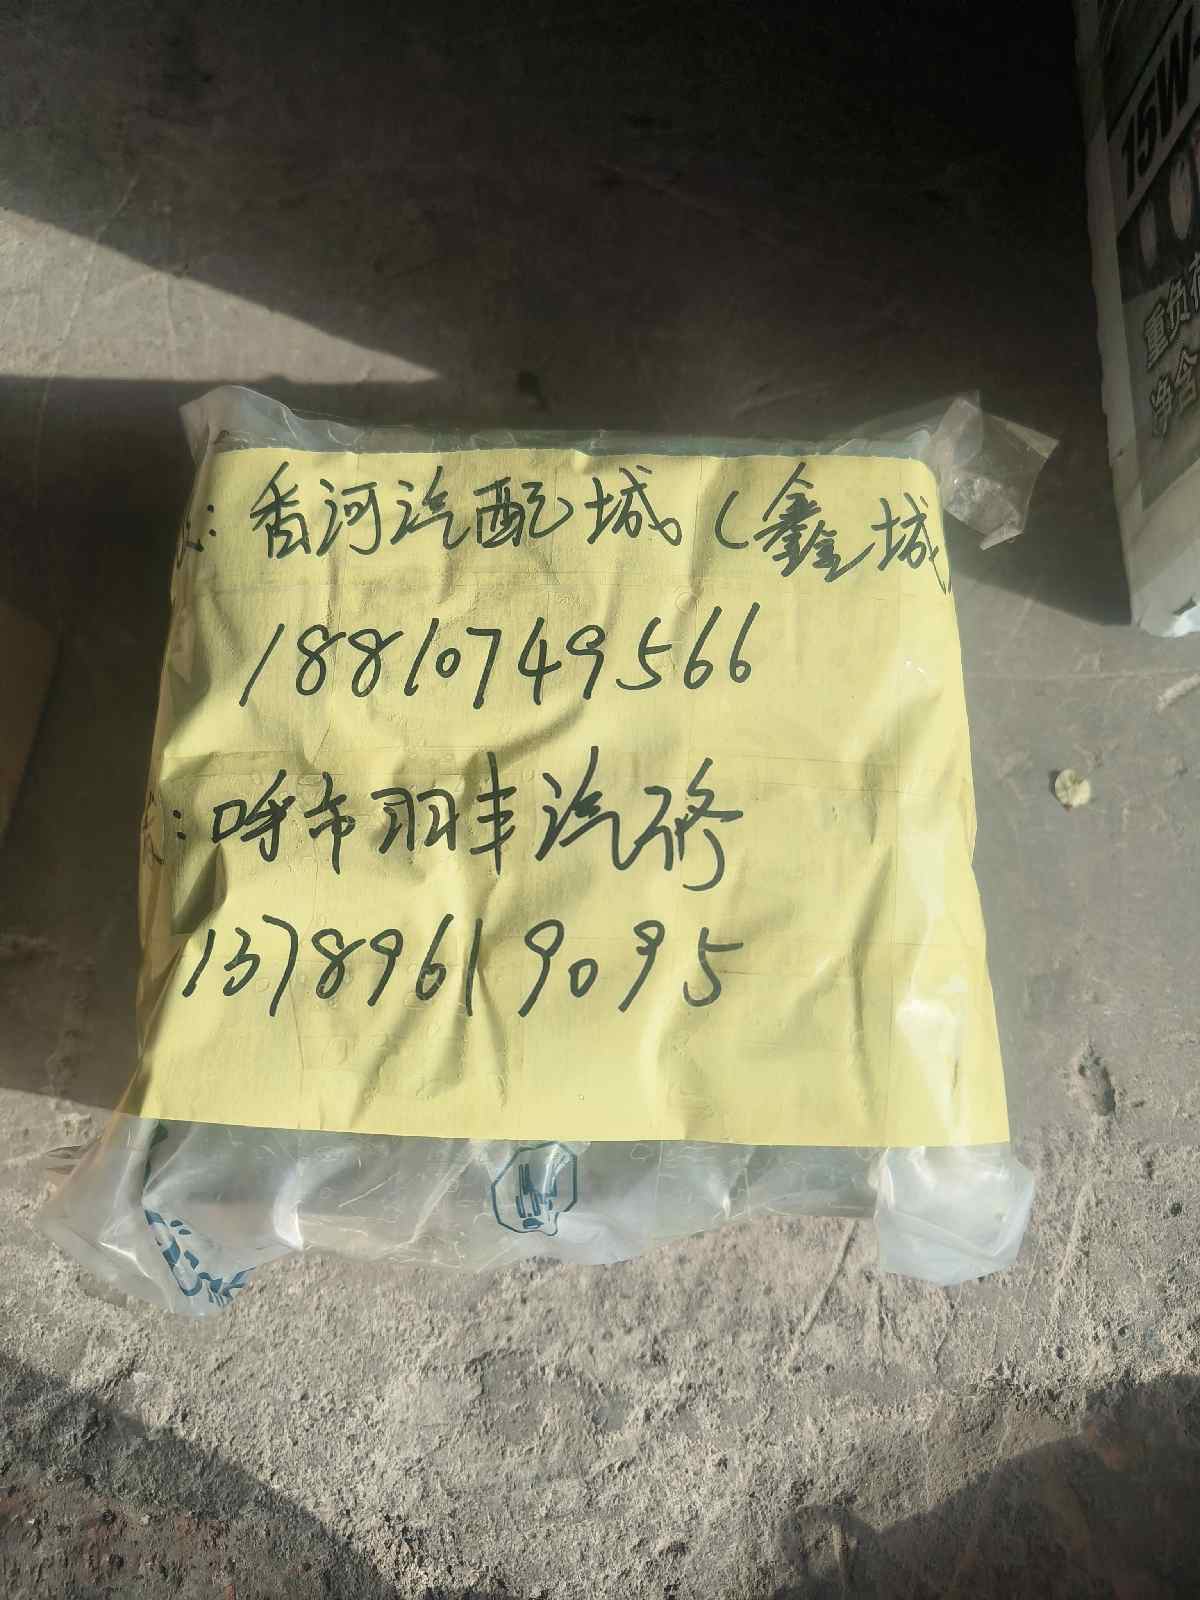 : 香河汽配城(鑫城)
18810749566
: 呼市羽丰汽修
13789619095
15W
重负
净含